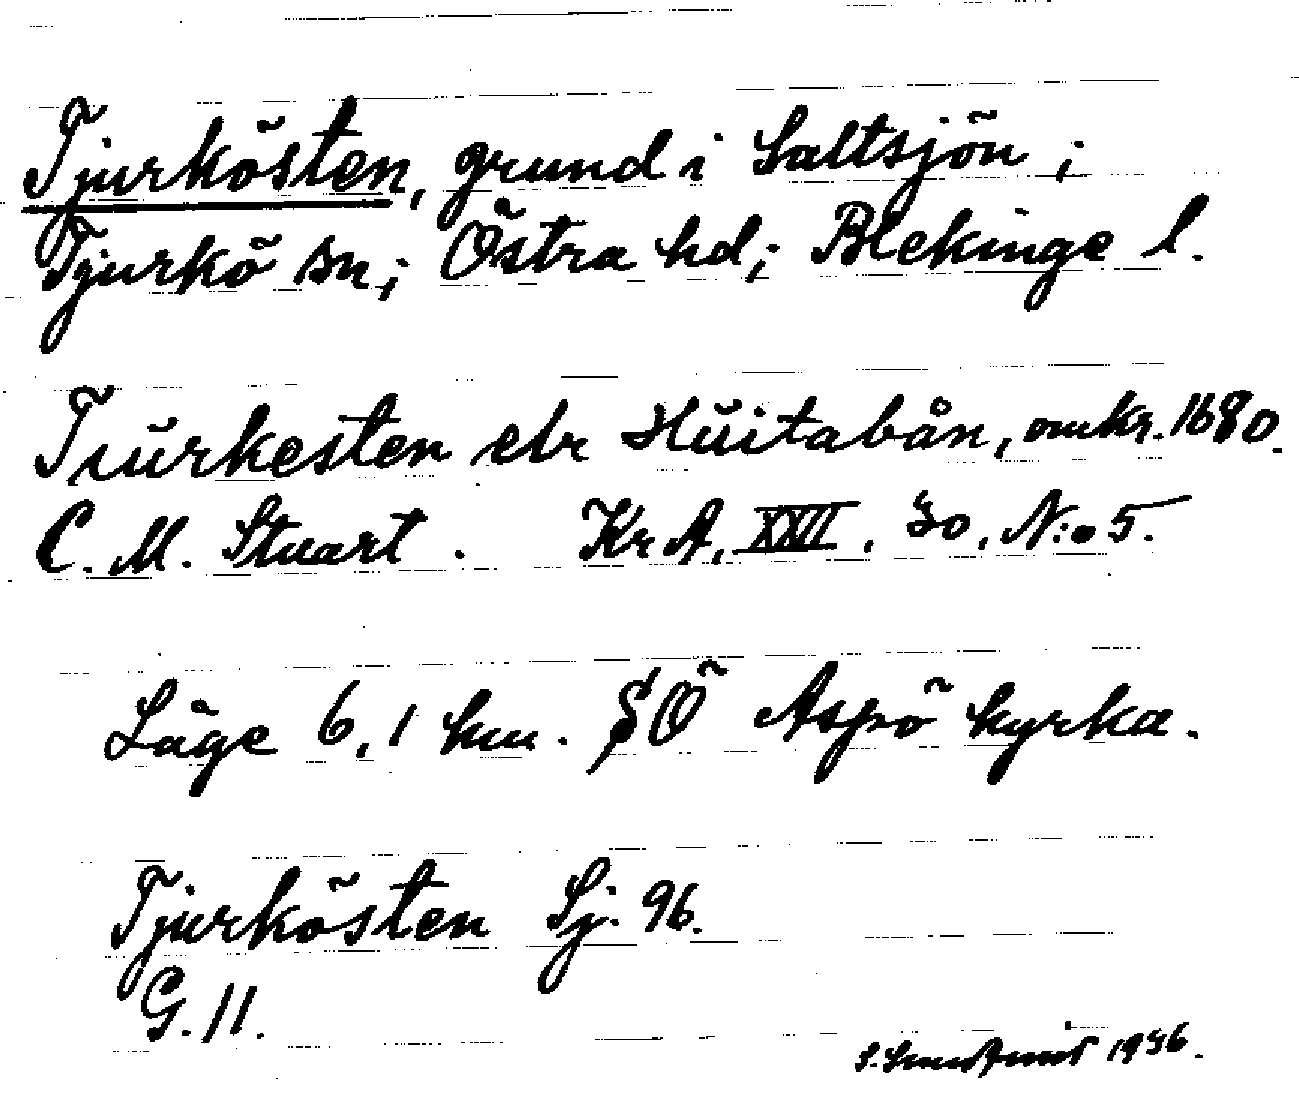 Tjurkösten, grund i Saltsjön;
Tjurkö sn; Östra hd; Blekinge l.
Tiürkesten elr Hüitabån, omkr. 1680.
C. M. Stuart. Kr A, XXVII, 30, N:o 5.
Läge 6,1 km. SÖ Aspö kyrka.
Tjurkösten Sj. 96.
G. 11.
1936.